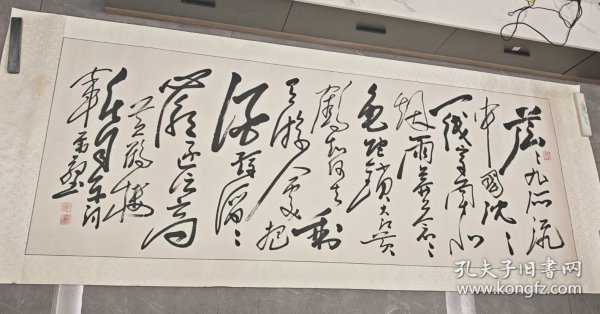 茫〻九派流
中國沈〻
一线穿南北
烟雨莽苍〻
龟蛇锁大江黄
鹤知何去剩
有游人处把
酒酹滔〻
心潮逐浪高
黄鹤楼
孔夫子旧书网
www.kongfz.com